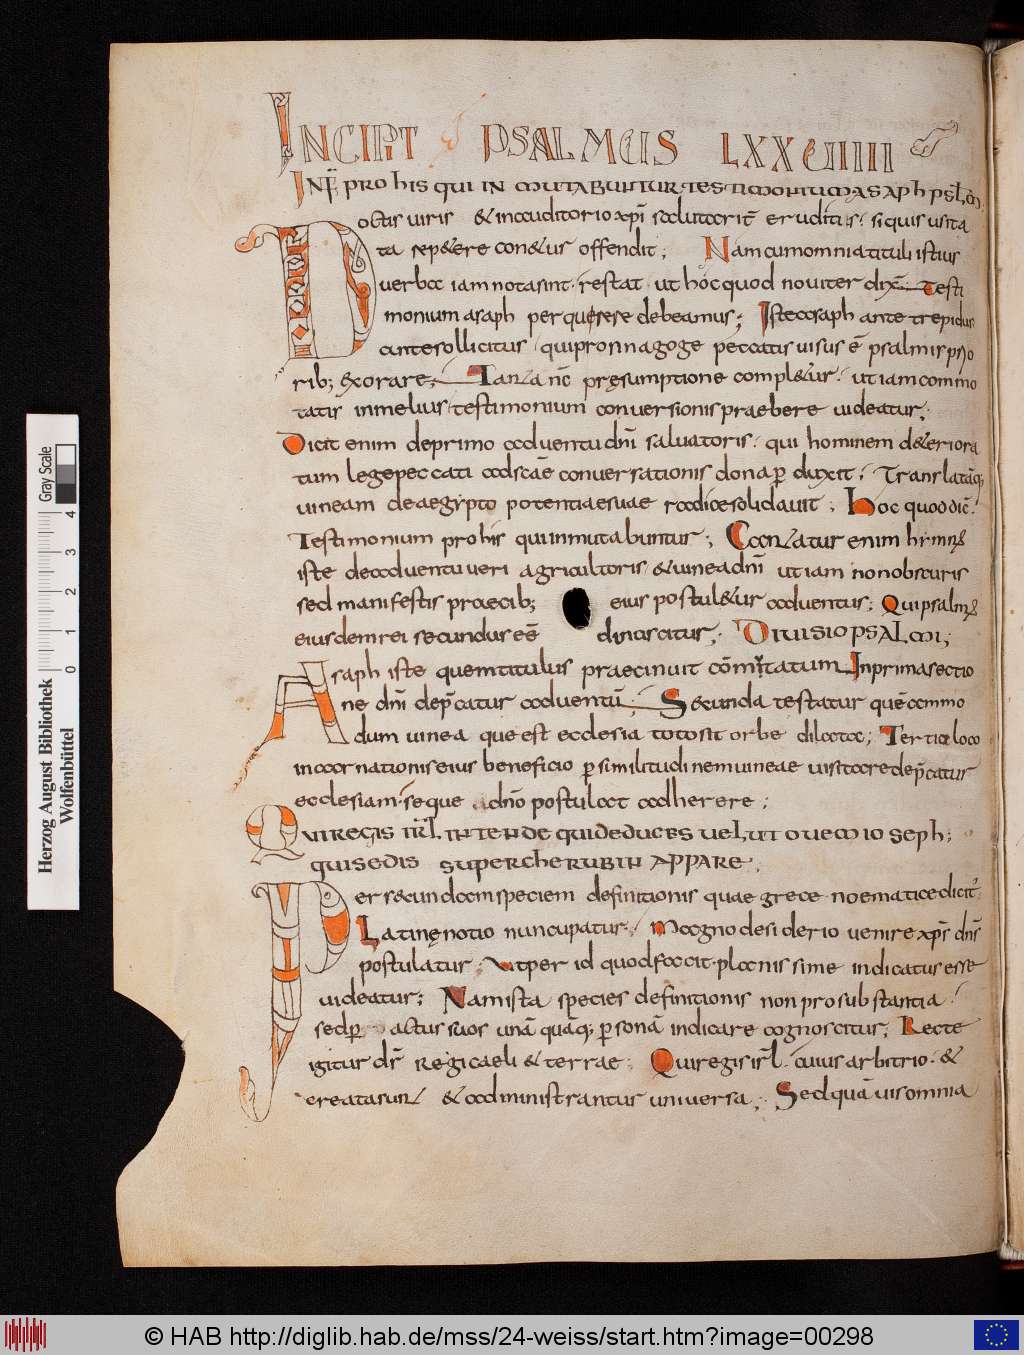 INCIPIT PSALMUS LXXUIIII
IN F̄. PRO HIS QUI INMUTABUNTUR. TESTIMONIUM ASAPH PSL̄M
Doctis uiris & in auditorio xp̄i salutarit̄ eruditis. si quis usita
ta rep&ere conatus offendit; Nam cum omnia tituli istius
uerba iam nota sint. restat ut hoc quod nouiter dix̄. Testi
monium asaph perquirere debeamus; Iste asaph ante trepidus
ante sollicitus. qui pro sinagoge peccatis uisus ē psalmis pro
rib; exorare; Tanta nc̄ pręsumptione compl&ur. ut iam commo
tatis in melius testimonium conuersionis praebere uideatur;
Dicit enim de primo aduentu dn̄i saluatoris. qui hominem d&eriora
tum lege peccati ad scāe conuersationis dona ꝑduxit; Translatāq;
uineam de aegypto potentiae suae radice solidauit; Hoc quod dic̄.
Testimonium pro his qui inmutabuntur; Cantatur enim hymnus
iste de aduentu ueri agricultoris & uinea dn̄i ut iam non obscuris
sed manifestis praecib; eius postul&ur aduentus; Qui psalmus
eiusdem rei secundus eē dinoscitur; DIUISIO PSALMI;
Asaph iste quem titulus praecinuit cōmutatum In prima sectio
ne dn̄i dep̄catur aduentū; Secunda testatur quēammo
dum uinea que est ecclesia toto sit orbe dilatata; Tertio loco
incarnationis eius beneficio ꝑ similitudinem uineae uisitare dep̄catur
ecclesiam. seque a dn̄o postulat adherere;
QUI REGIS IRL̄. INTENDE QUI DEDUCES UELUT OUEM IOSEPH;
QUI SEDIS SUPER CHERUBIN APPARE;
Per secundam speciem definitionis quae grece noematice dicit̄.
Latinę notio nuncupatur; Magno desiderio uenire xp̄s dn̄s
postulatur; Ut per id quod facit. plenissime indicatus esse
uideatur; Nam ista species definitionis non pro substantia.
sed ꝑ actus suos unā quāq; ꝑsonā indicare cognoscitur; Recte
igitur dr̄ regi caeli & terrae; Qui regis isrl̄. cuius arbitrio. &
creata sunt & administrantur uniuersa; Sed quā uis omnia
Herzog August Bibliothek
Wolfenbüttel
0 1 2 3 4
Gray Scale
© HAB http://diglib.hab.de/mss/24-weiss/start.htm?image=00298